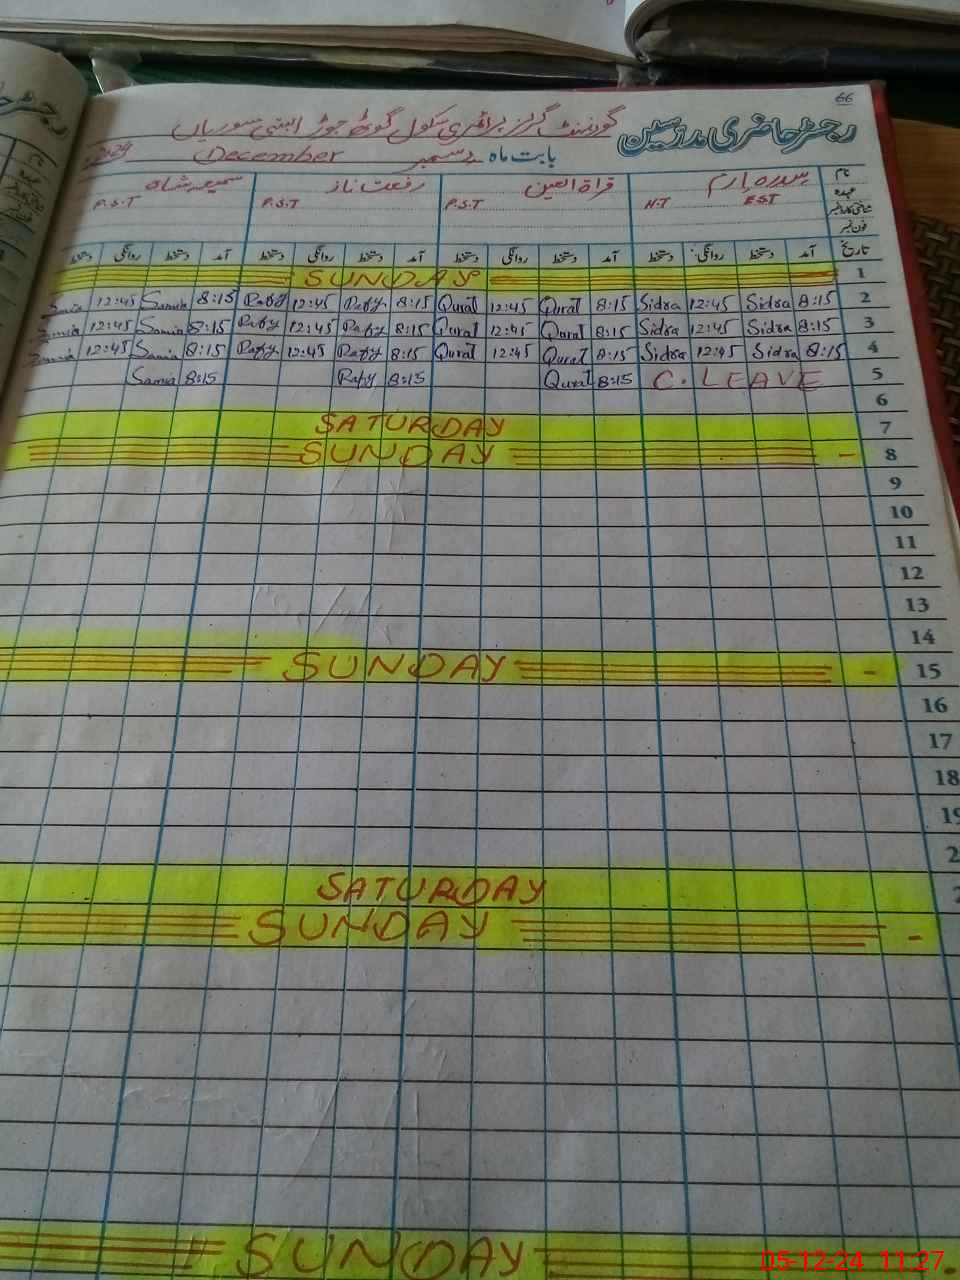 66
رجسٹر حاضری مدرسین گورنمنٹ گرلز پرائمری سکول گوٹھ
بابت ماہ دسمبر December
نام سدرہ ارم قراۃ العین رفعت ناز سمیعہ شاہ
عہدہ H.T E.S.T P.S.T P.S.T P.S.T
شناختی کارڈ نمبر
فون نمبر
تاریخ آمد دستخط روانگی دستخط آمد دستخط روانگی دستخط آمد دستخط روانگی دستخط آمد دستخط روانگی دستخط
1 SUNDAY
2 8:15 Sidra 12:45 Sidra 8:15 Qurat 12:45 Qurat 8:15 Rafy 12:45 Rafy 8:15 Samia 12:45 Samia
3 8:15 Sidra 12:45 Sidra 8:15 Qurat 12:45 Qurat 8:15 Rafy 12:45 Rafy 8:15 Samia 12:45 Samia
4 8:15 Sidra 12:45 Sidra 8:15 Qurat 12:45 Qurat 8:15 Rafy 12:45 Rafy 8:15 Samia 12:45 Samia
5 C. LEAVE 8:15 Qurat 8:15 Rafy 8:15 Samia
6
7 SATURDAY
8 SUNDAY
9
10
11
12
13
14
15 SUNDAY
16
17
18
19
2
2 SATURDAY
SUNDAY
SUNDAY
05-12-24 11:27